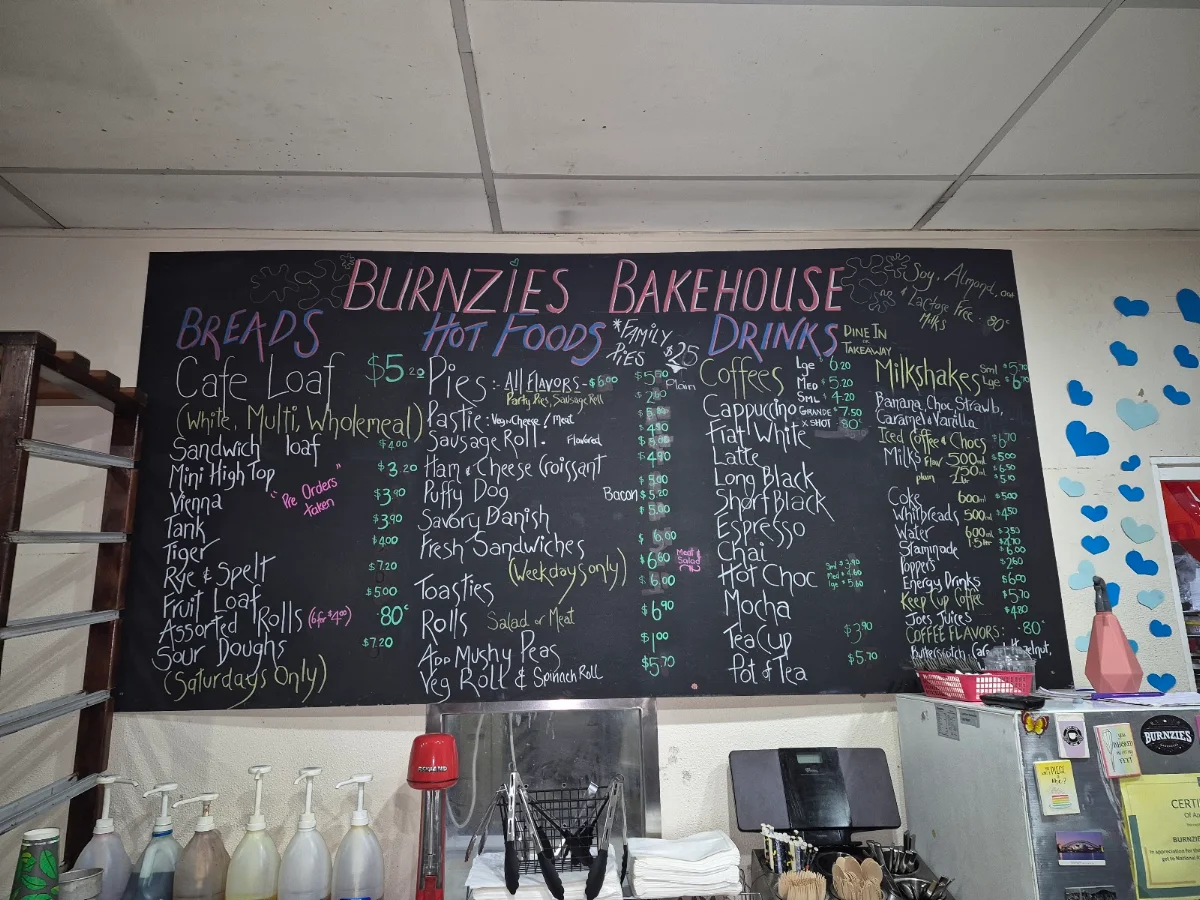 BURNZIES BAKEHOUSE
Soy, Almond, Oat
& Lactose Free
Milks 80c
BREADS
Cafe Loaf $5.20
(White, Multi, Wholemeal)
Sandwich loaf $4.00
Mini High Top $3.20
"Pre Orders
Taken"
Vienna $3.90
Tank $3.90
Tiger $4.00
Rye & Spelt $7.20
Fruit Loaf $5.00
Assorted Rolls (6 for $4.00) 80c
Sour Doughs $7.20
(Saturdays Only)
HOT FOODS
*FAMILY
PIES $25
Pies :- All FLAVORS - $6.00 $5.50 Plain
Party Pies, Sausage Roll
Pastie : Veg & Cheese / Meat
Sausage Roll. Flavored
Ham & Cheese Croissant
Puffy Dog
Bacon $5.20
Savory Danish
Fresh Sandwiches
Meat &
Salad
(Weekdays only)
Toasties
Rolls Salad or Meat $6.90
Add Mushy Peas $1.00
Veg Roll & Spinach Roll $5.70
DRINKS
DINE IN
or
TAKEAWAY
Coffees
Lge 6.20
Med $5.20
SML $4.20
GRANDE $7.50
X SHOT 80c
Cappuccino
Flat White
Latte
Long Black
Short Black
Espresso
Chai
Hot Choc
Mocha
Tea Cup $3.90
Pot of Tea $5.70
Milkshakes
Sml $5.70
Lge
Banana, Choc, Strawb,
Caramel & Vanilla
Iced Coffee & Chocs
Milks Flav 500ml
750ml
plain 2Lt
Coke 600ml $5.00
Whitbreads 500ml $4.50
Water 600ml
1.5 liter
Staminade
Poppers
Energy Drinks
Keep Cup Coffee
Joes Juices
COFFEE FLAVORS: .80c
Butterscotch, Hazelnut,
BURNZIES
CERTI
BURNZIE